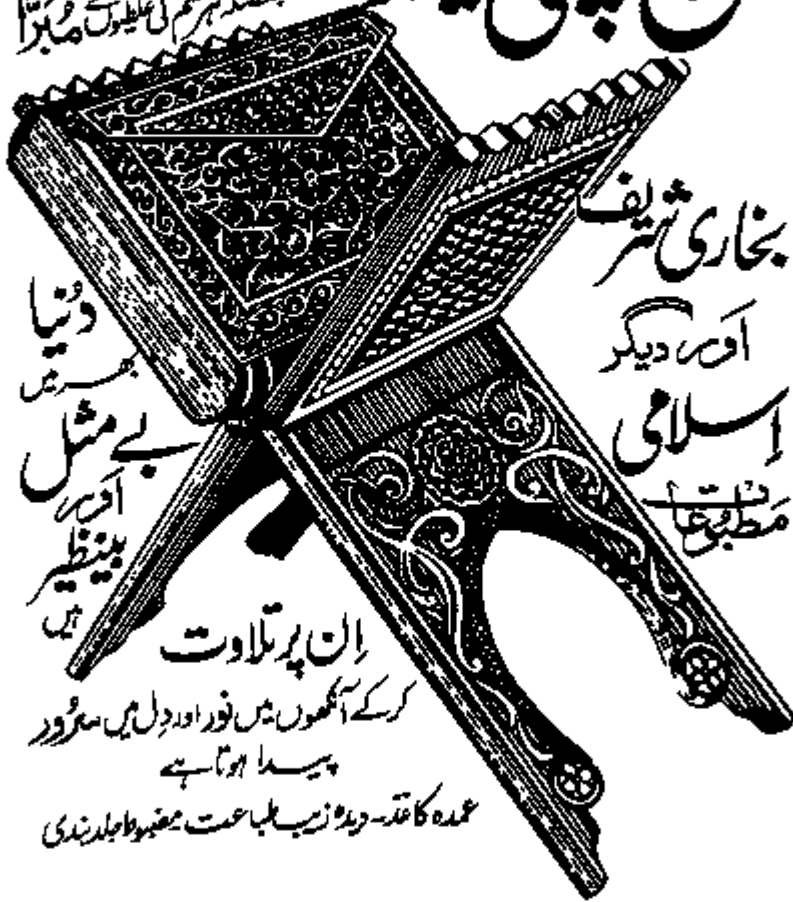 ہر قسم کی غلطیوں سے مُبرّا
بخاری شریف
اور دیگر
اِسلامی
مطبُوعات
دُنیا
بھر میں
بے مثل
اور
بینظیر
ہیں
اِن پر تلاوت
کرکے آنکھوں میں نور اور دِل میں سرُور
پیدا ہوتا ہے
عمدہ کاغذ۔ دیدہ زیب طباعت مضبوط جلد بندی